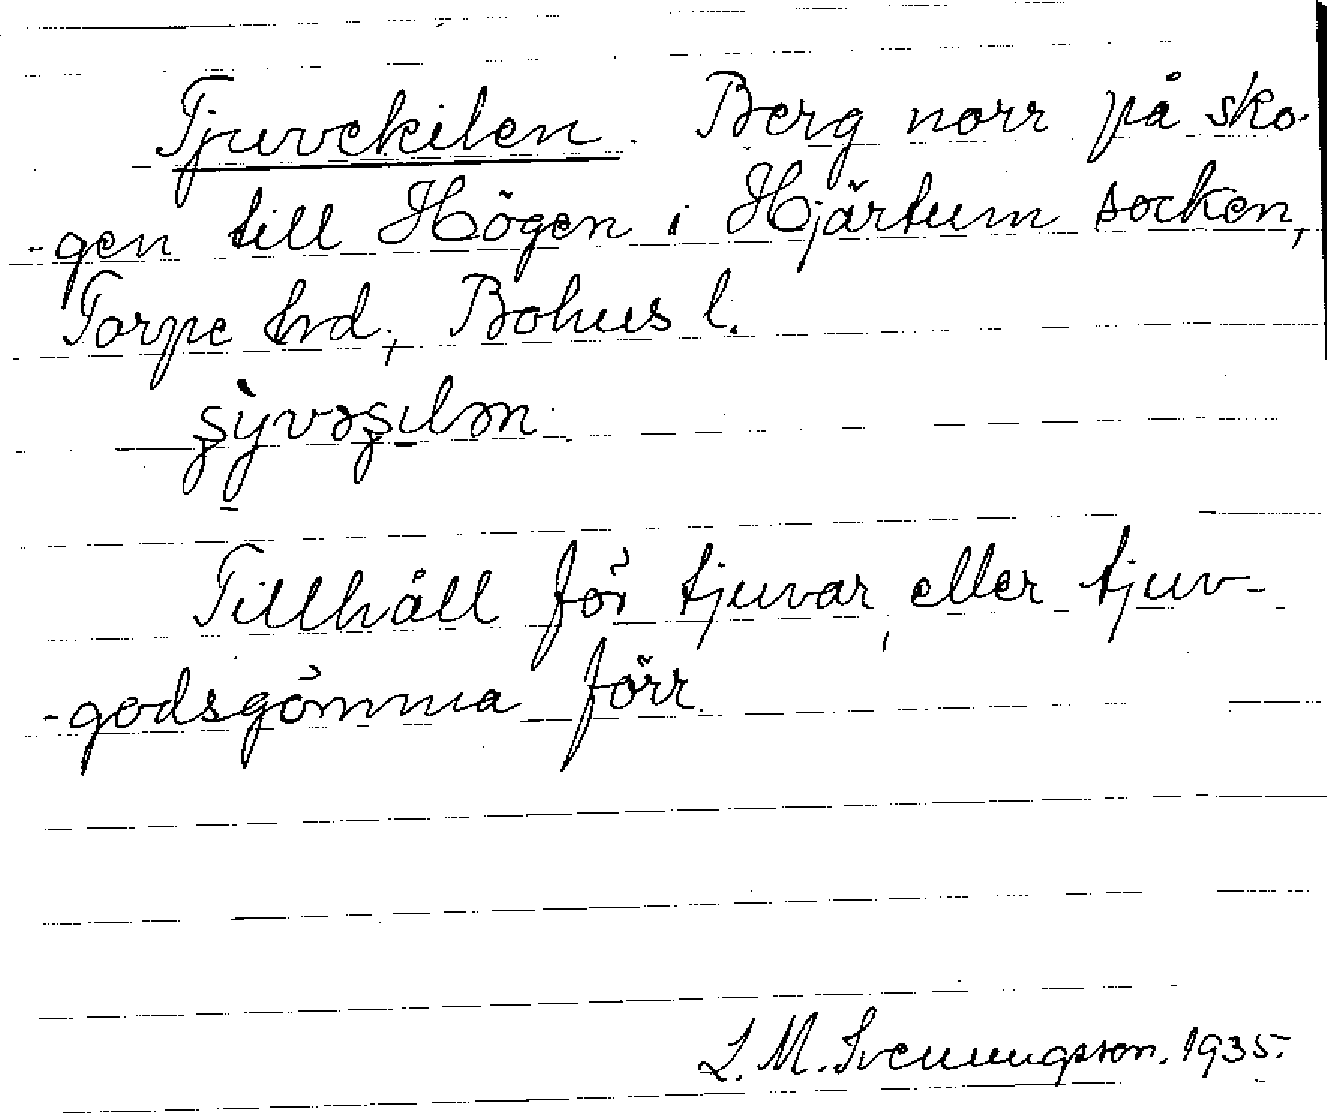 Tjuvekilen. Berg norr på sko-
-gen till Högen i Hjärtum socken,
Torpe hrd, Bohus l.
Tillhåll för tjuvar, eller tjuv-
-godsgömma förr.
L. M. Svenungsson. 1935.